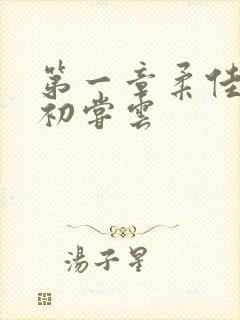 第一章柔佳
初嘗雲
湯子星